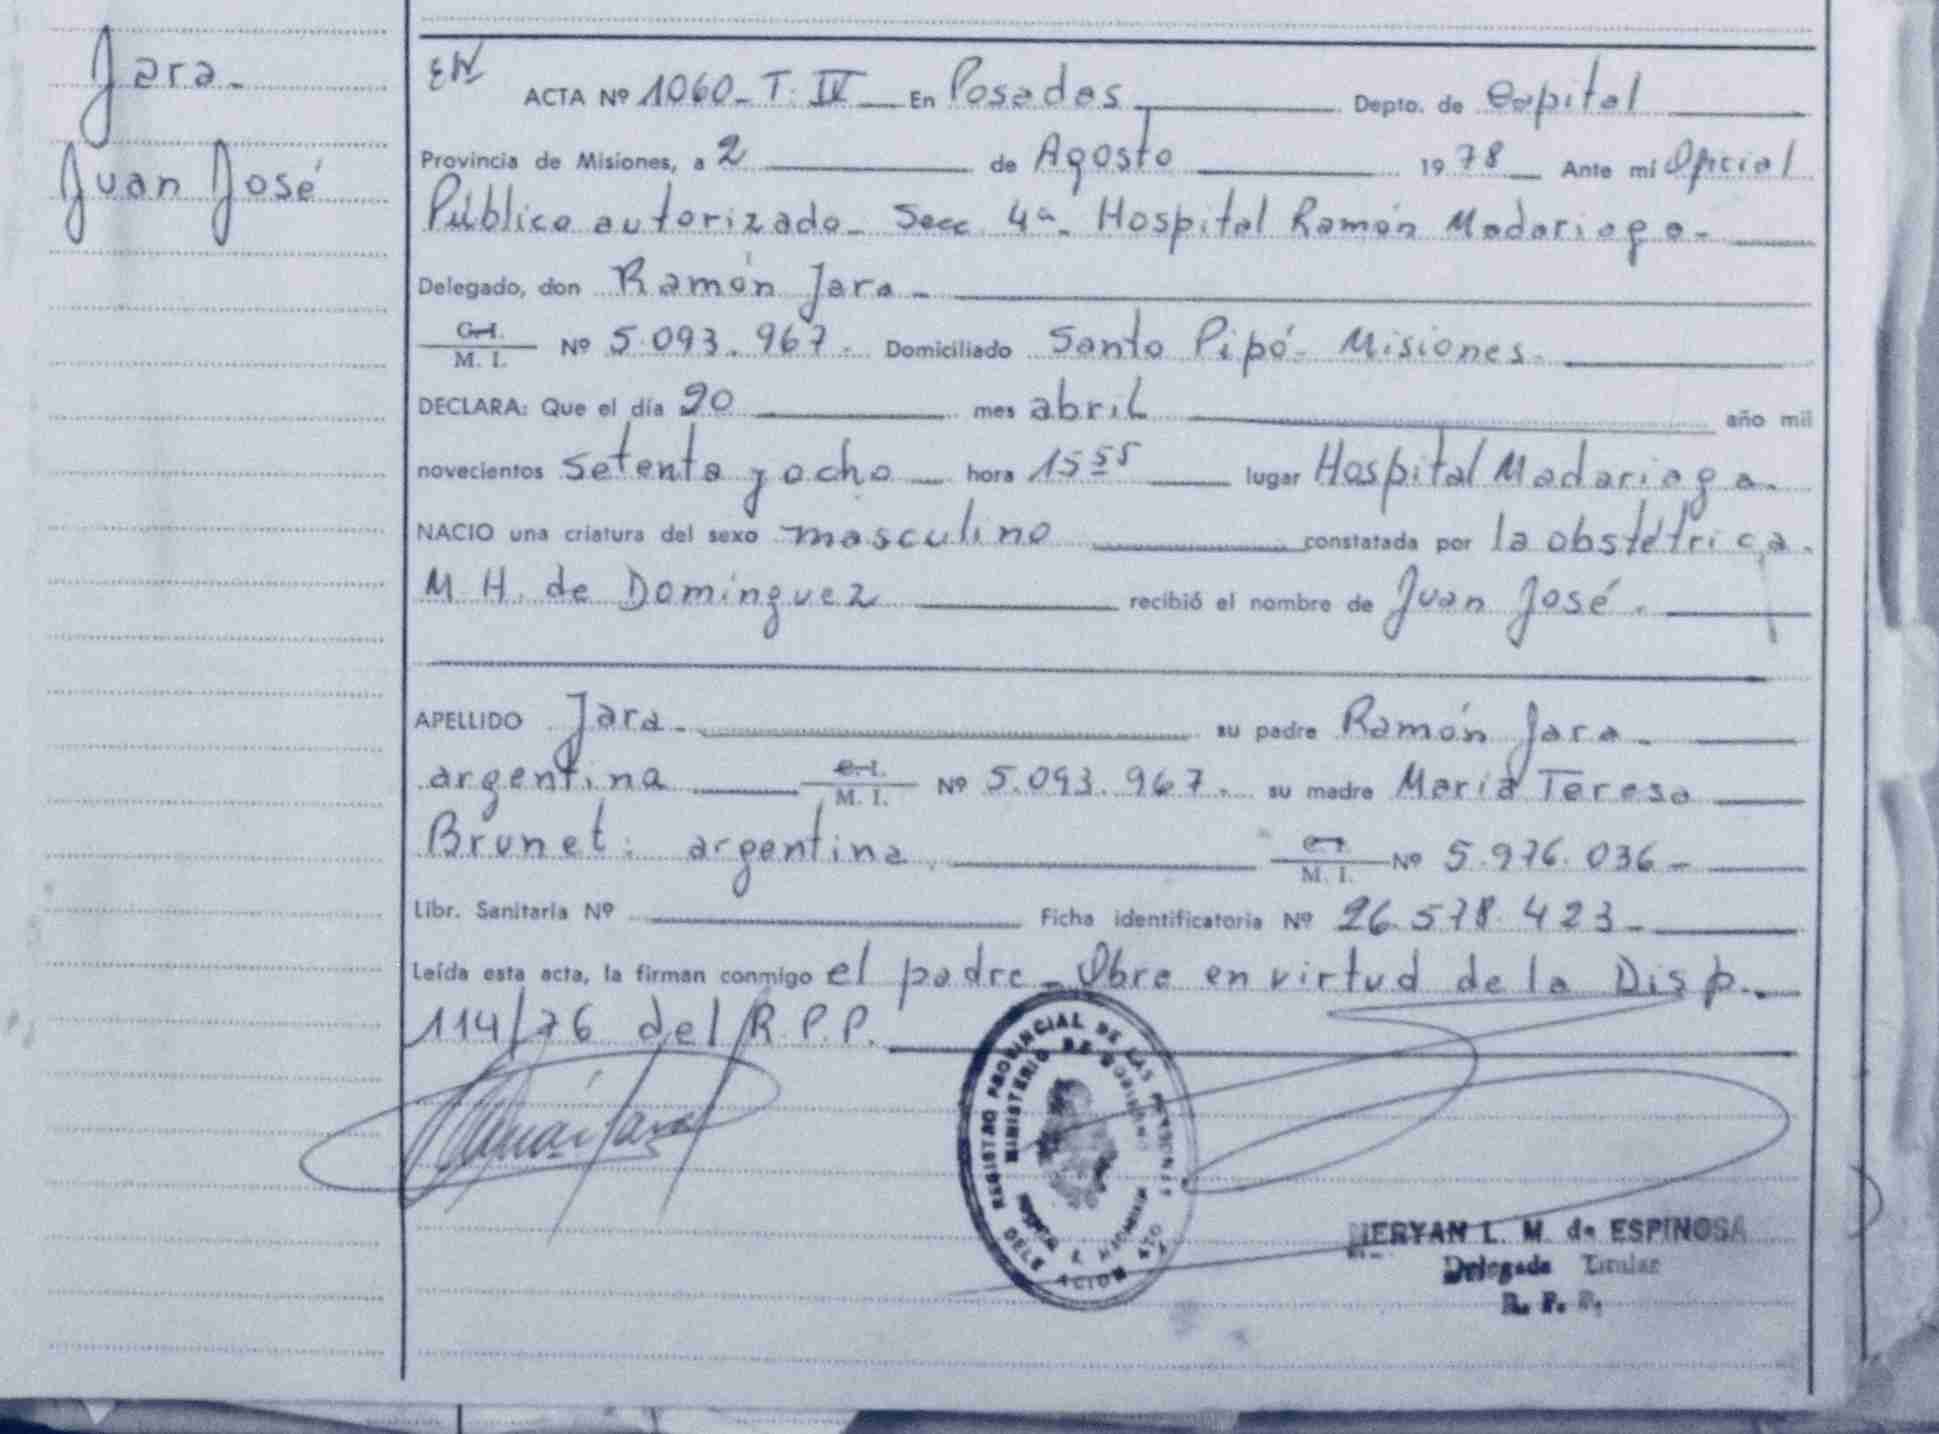 Jara.
Juan José
EW
ACTA Nº 1060 - T. IV En Posadas Depto. de Capital
Provincia de Misiones, a 2 de Agosto 1978 Ante mí Oficial
Público autorizado - Secc 4ª - Hospital Ramón Madariaga -
Delegado, don Ramón Jara -
C. I.
M. I. Nº 5.093.967. Domiciliado Santo Pipó - Misiones.
DECLARA: Que el día 20 mes abril año mil
novecientos setenta y ocho hora 15 55 lugar Hospital Madariaga.
NACIO una criatura del sexo masculino constatada por la obstétrica.
M. H. de Domínguez recibió el nombre de Juan José.
APELLIDO Jara. su padre Ramón Jara -
argentina C. I.
M. I. Nº 5.093.967. su madre María Teresa
Brunet: argentina. C. I.
M. I. Nº 5.976.036 -
Libr. Sanitaria Nº Ficha identificatoria Nº 26.578.423 -
Leída esta acta, la firman conmigo el padre - Obre en virtud de la Disp.
114/76 del R. P. P.
REGISTRO PROVINCIAL DE LAS PERSONAS
MINISTERIO DE GOBIERNO
DELEGACION
MERYAN L. M. de ESPINOSA
Delegada Titular
R. P. P.